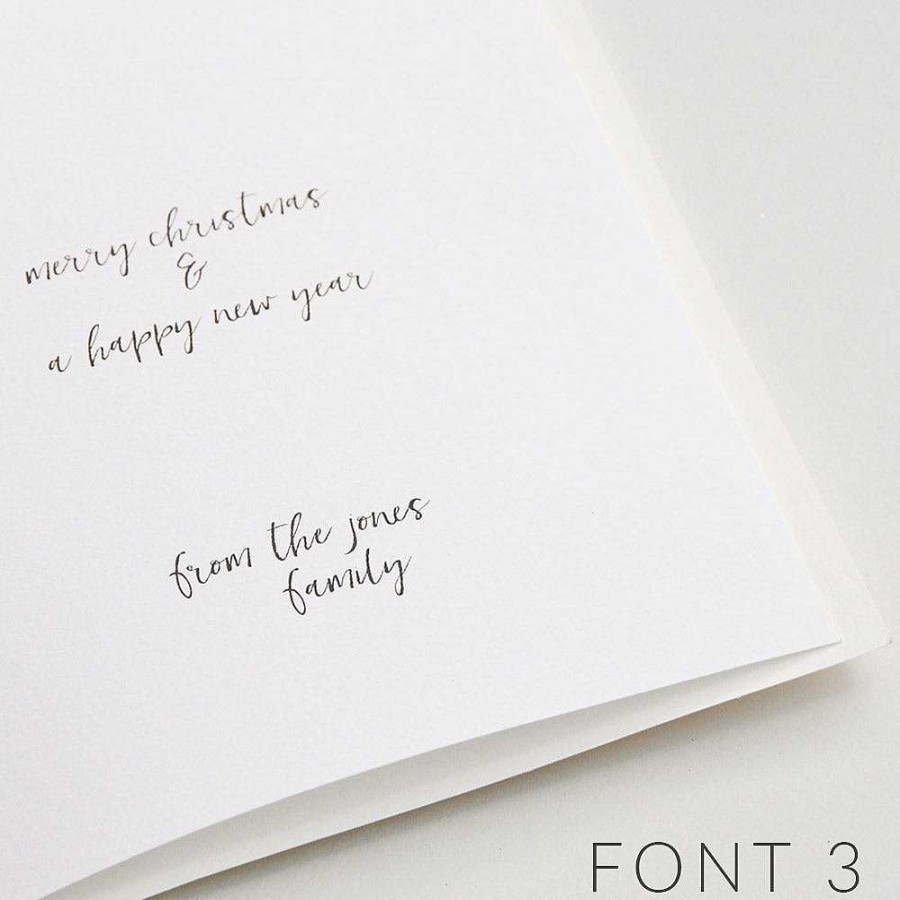 merry christmas
&
a happy new year
from the jones
family
FONT 3